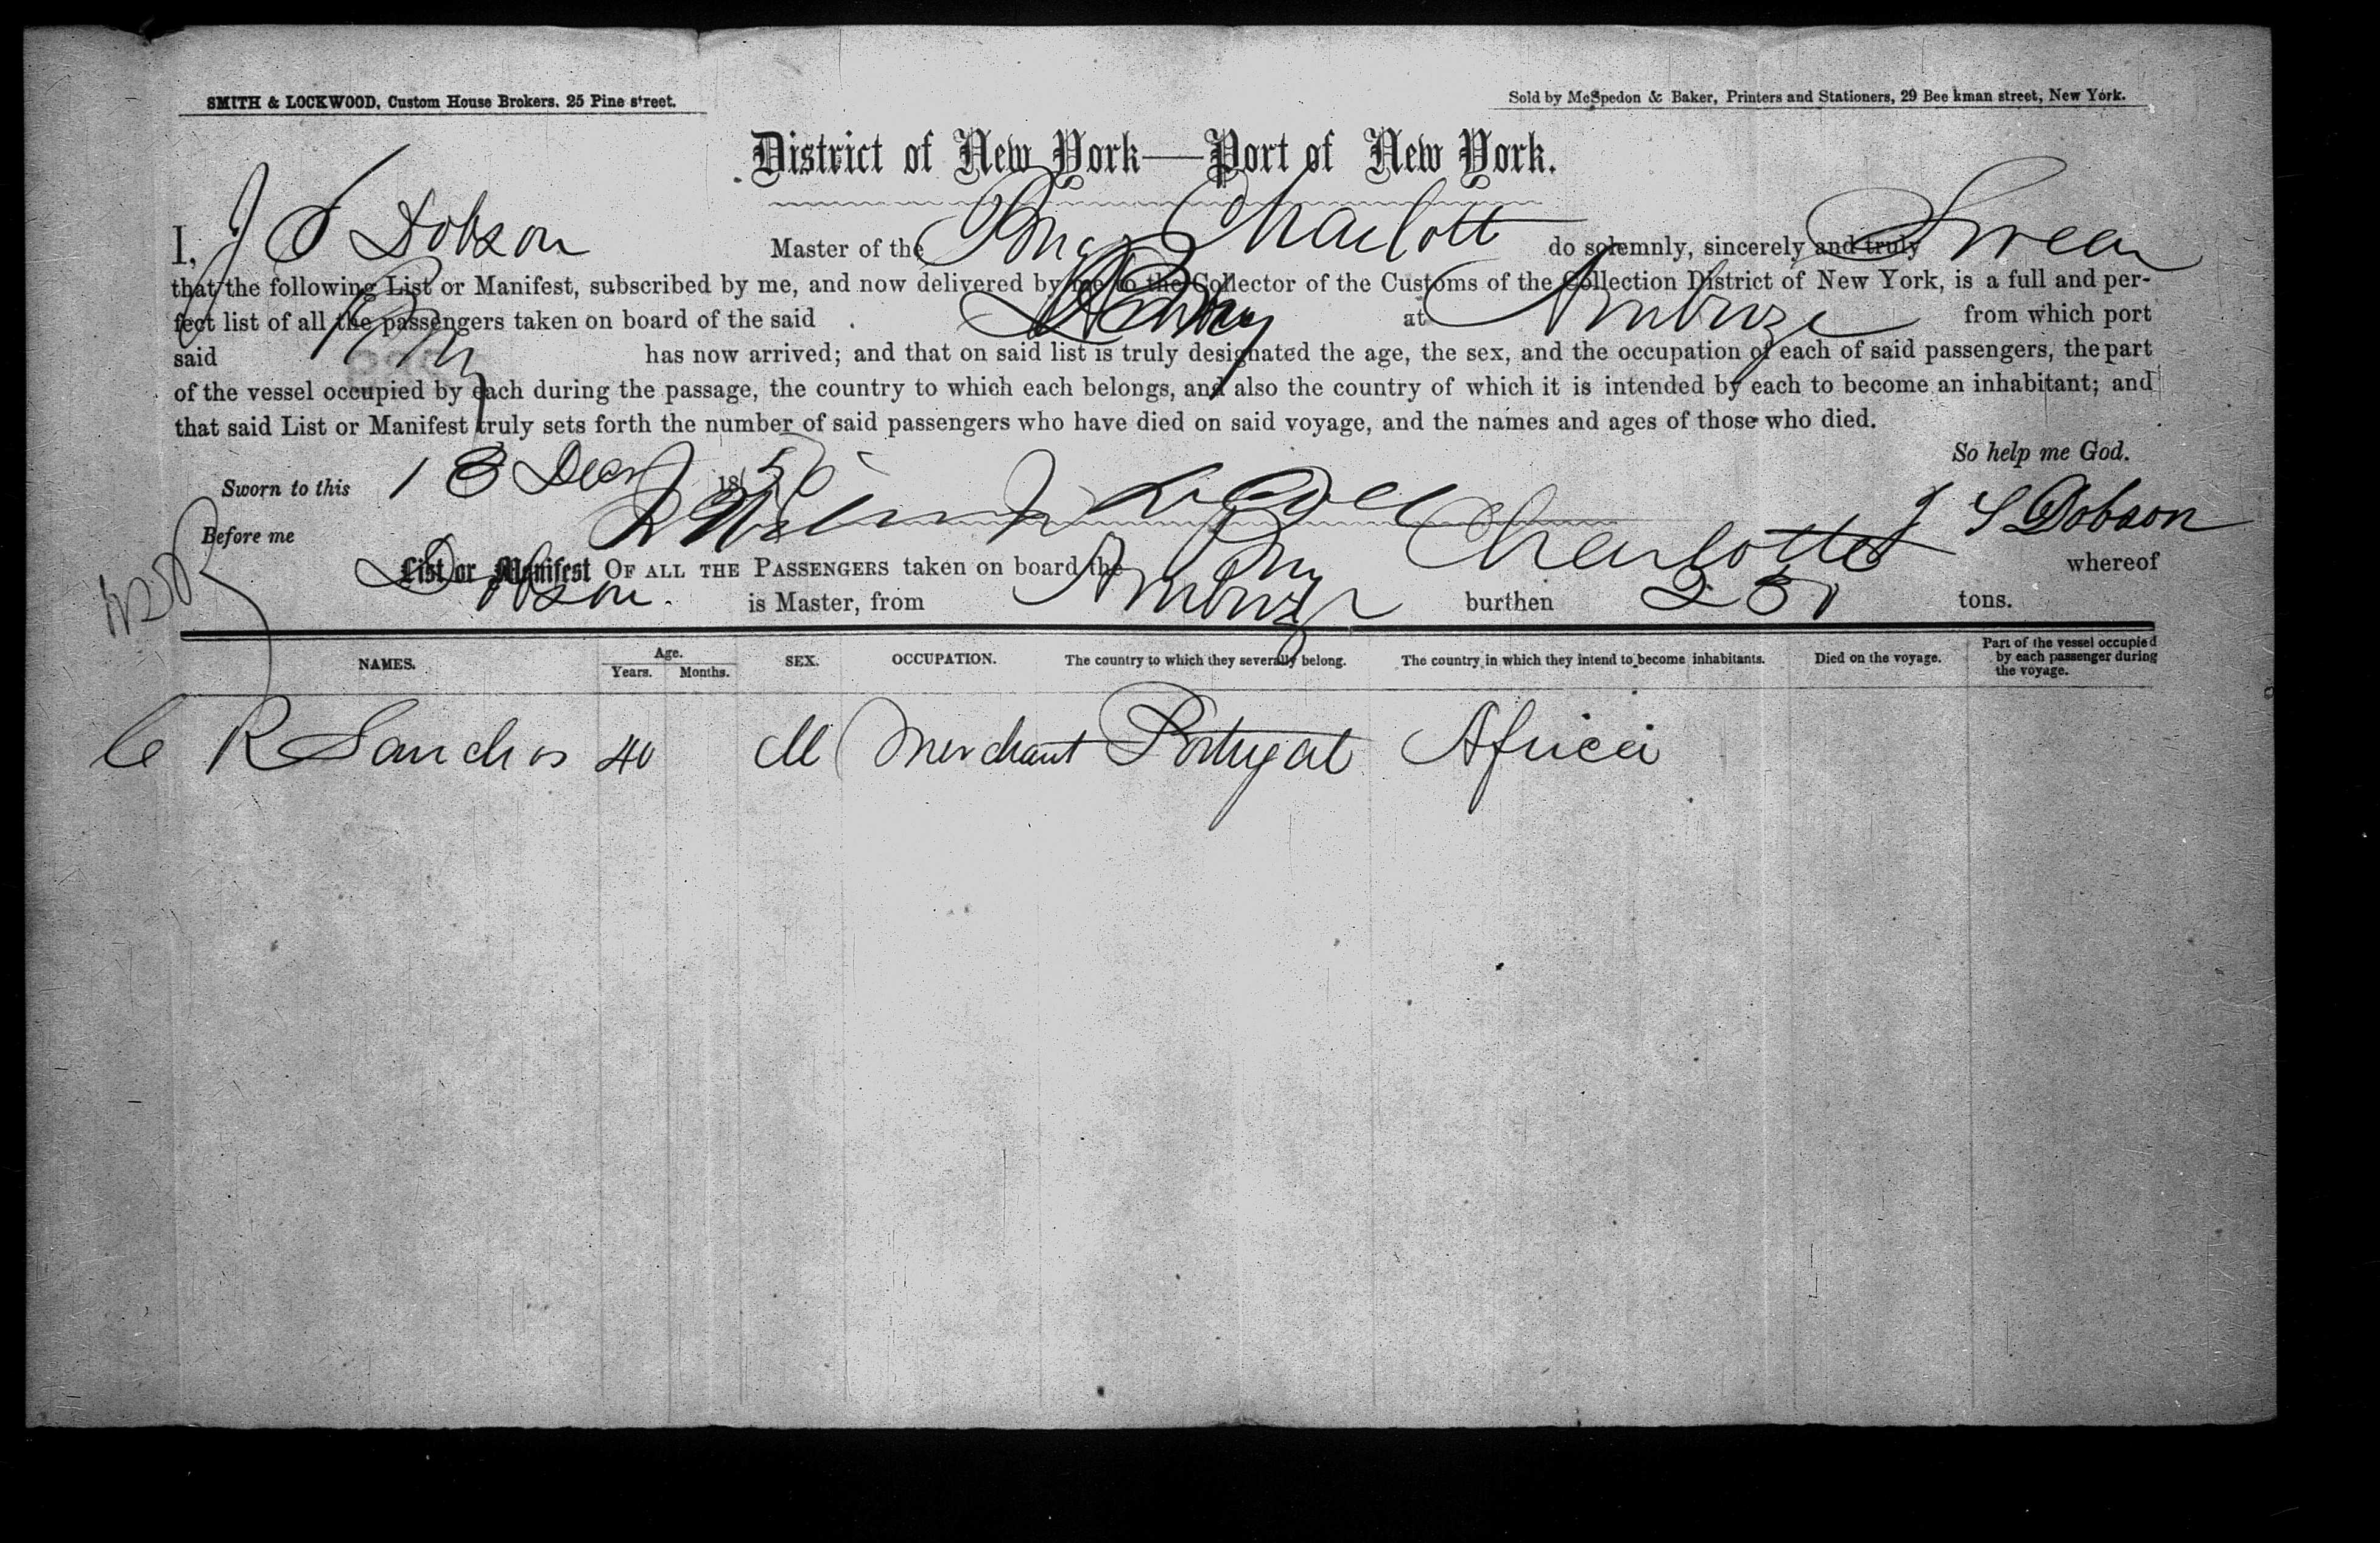 SMITH & LOCKWOOD, Custom House Brokers. 25 Pine street.
Sold by McSpedon & Baker, Printers and Stationers, 29 Beekman street, New York.
District of New York—Port of New York.
I, J S Dobson Master of the Brig Charlott do solemnly, sincerely and truly Swear
that the following List or Manifest, subscribed by me, and now delivered by me to the Collector of the Customs of the Collection District of New York, is a full and per-
fect list of all the passengers taken on board of the said Brig at Ambrize from which port
said Brig has now arrived; and that on said list is truly designated the age, the sex, and the occupation of each of said passengers, the part
of the vessel occupied by each during the passage, the country to which each belongs, and also the country of which it is intended by each to become an inhabitant; and
that said List or Manifest truly sets forth the number of said passengers who have died on said voyage, and the names and ages of those who died.
So help me God.
Sworn to this 13 Decr 1856
J S Dobson
Before me
List or Manifest OF ALL THE PASSENGERS taken on board the Brig Charlotte whereof
Dobson. is Master, from Ambriz burthen 230 tons.
NAMES. Age. Years. Months. SEX. OCCUPATION. The country to which they severally belong. The country in which they intend to become inhabitants. Died on the voyage. Part of the vessel occupied by each passenger during the voyage.
C R Sanchos 40 M Merchant Portugal Africa